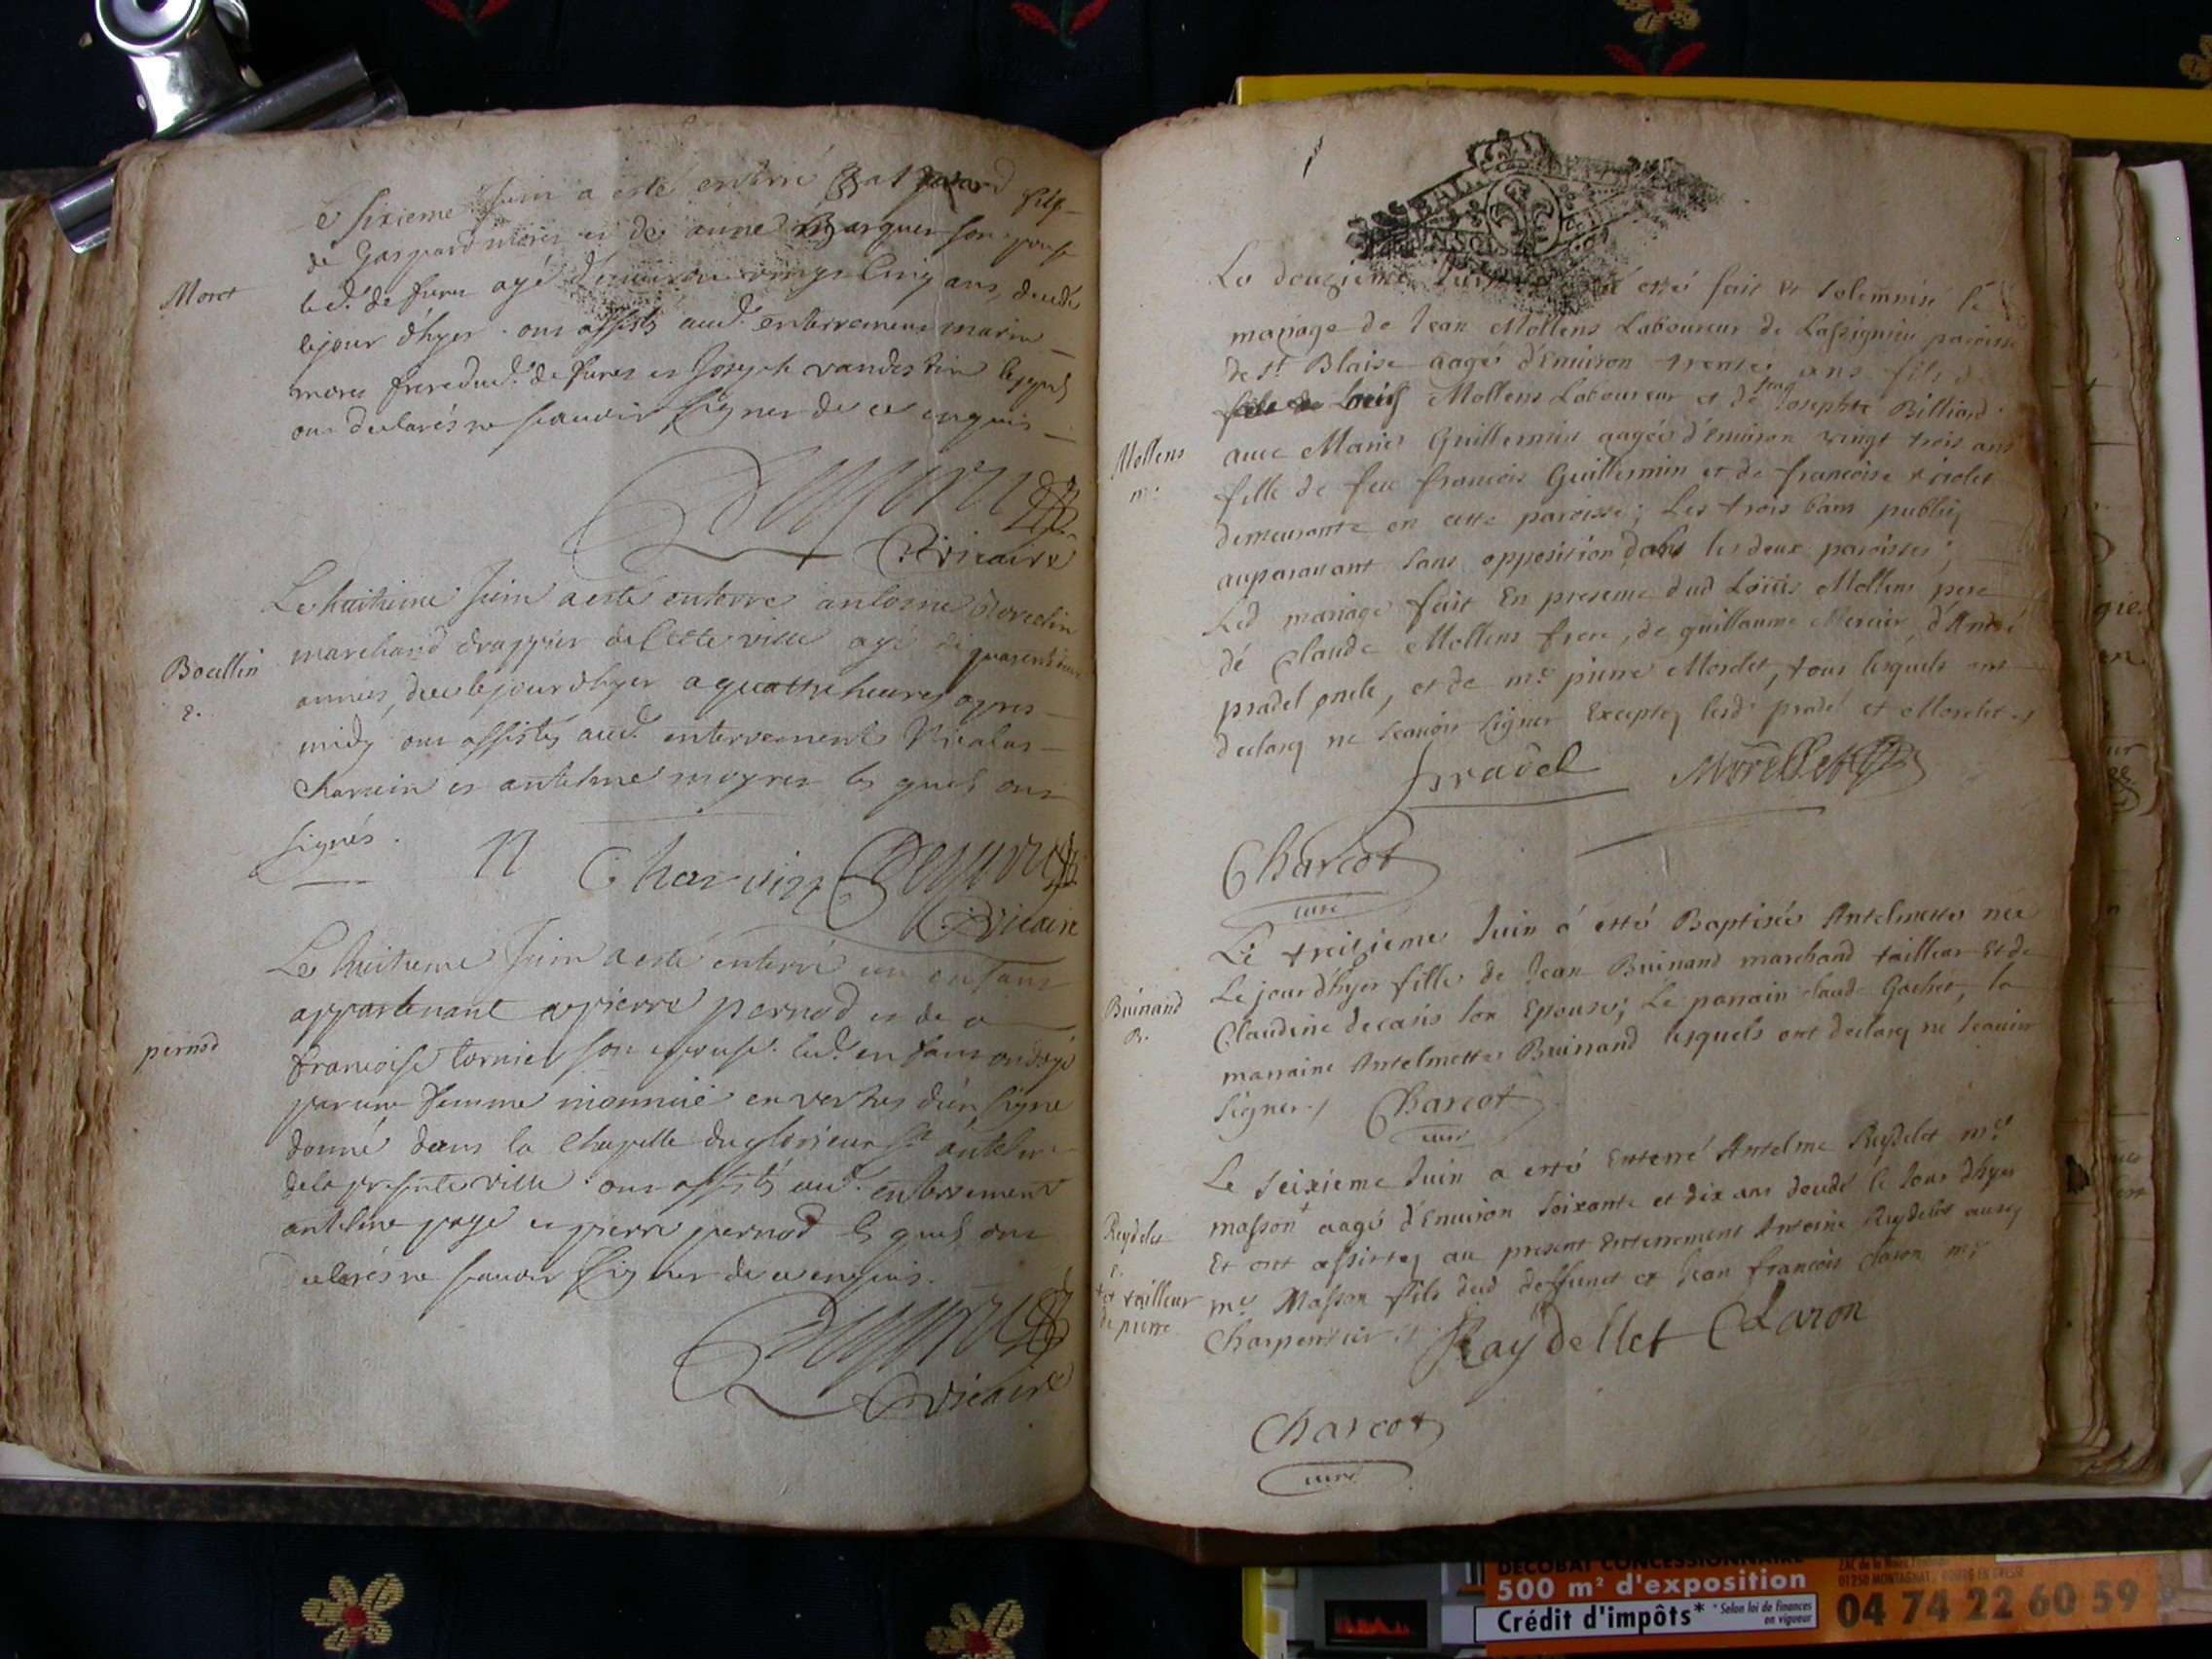 Le sixieme Juin a esté enterré
de Gaspard moret et de anne son epouse
Moret
led. defunt agé d'environ vingt cinq ans, decedé
le jour d'hyer. ont assistés aud. enterrement marin
moret frere dud. defunt et Joseph lesquels
ont declarés ne scavoir signer de ce enquis
vicaire
Le huitieme Juin a esté enterré antoine
marchand drappier de cette ville agé de
Bocellin
années, decedé le jour d'hyer a quattre heures apres
midy ont assistés aud. enterrement Nicolas
Charvin et antelme lesquels ont
signés.
n Charvin
vicaire
Le huitieme Juin a esté enterré un enfant
appartenant a pierre pernod et de
pernod
francoise tornier son epouse. led. enfant ondoyé
par une femme en vertus d'un signe
donné dans la Chapelle du glorieux St. antelme
de la presente ville. ont assistés aud. enterrement
antelme page et pierre pernod lesquels ont
declarés ne scavoir signer de ce enquis.
vicaire
Le douzieme Juin a esté fait et solemnisé le
mariage de Jean Mollens Laboureur de Lassignieu paroisse
de St. Blaise aagé d'Environ trente ans fils de
Louis Mollens Laboureur et de Josephte Billiard
Mollens
m.
avec Marie Guillermin aagée d'Environ vingt trois ans
fille de feu francois Guillermin et de francoise
demeurante en cette paroisse; Les trois bans publiez
auparavant sans opposition dans les deux paroisses;
Led mariage fait En presence dud Loüis Mollens pere
de Claude Mollens frere, de guillaume Mercier, d'André
pradel oncle, et de me. pierre Morelet, tous lesquels ont
declarez ne scavoir signer Exceptez lesd. pradel et Morelet
pradel Morellet
Charcot
curé
Le treizieme Juin á esté Baptisée Antelmette née
Le jour d'hyer fille de Jean Buinand marchand tailleur Et de
Buinand
B.
Claudine decasis son Epouse; Le parrain claude Gachet, la
marraine Antelmette Buinand lesquels ont declarez ne scavoir
signer. Charcot
curé
Le seizieme Juin a esté Enterré Antelme Reydelet me.
masson + aagé d'Environ soixante et dix ans decedé le Jour d'hyer
Reydelet
Et ont assistez au present Enterrement Antoine Reydelet aussy
+ et tailleur
de pierre
me. Masson fils dud deffunct et Jean francois Claron me.
Charpentier
Raydellet Claron
Charcot
curé
DECOBAT CONCESSIONNAIRE
500 m² d'exposition
Crédit d'impôts* * Selon loi de finances
en vigueur
01250 MONTAGNAT, BOURG EN BRESSE
04 74 22 60 59